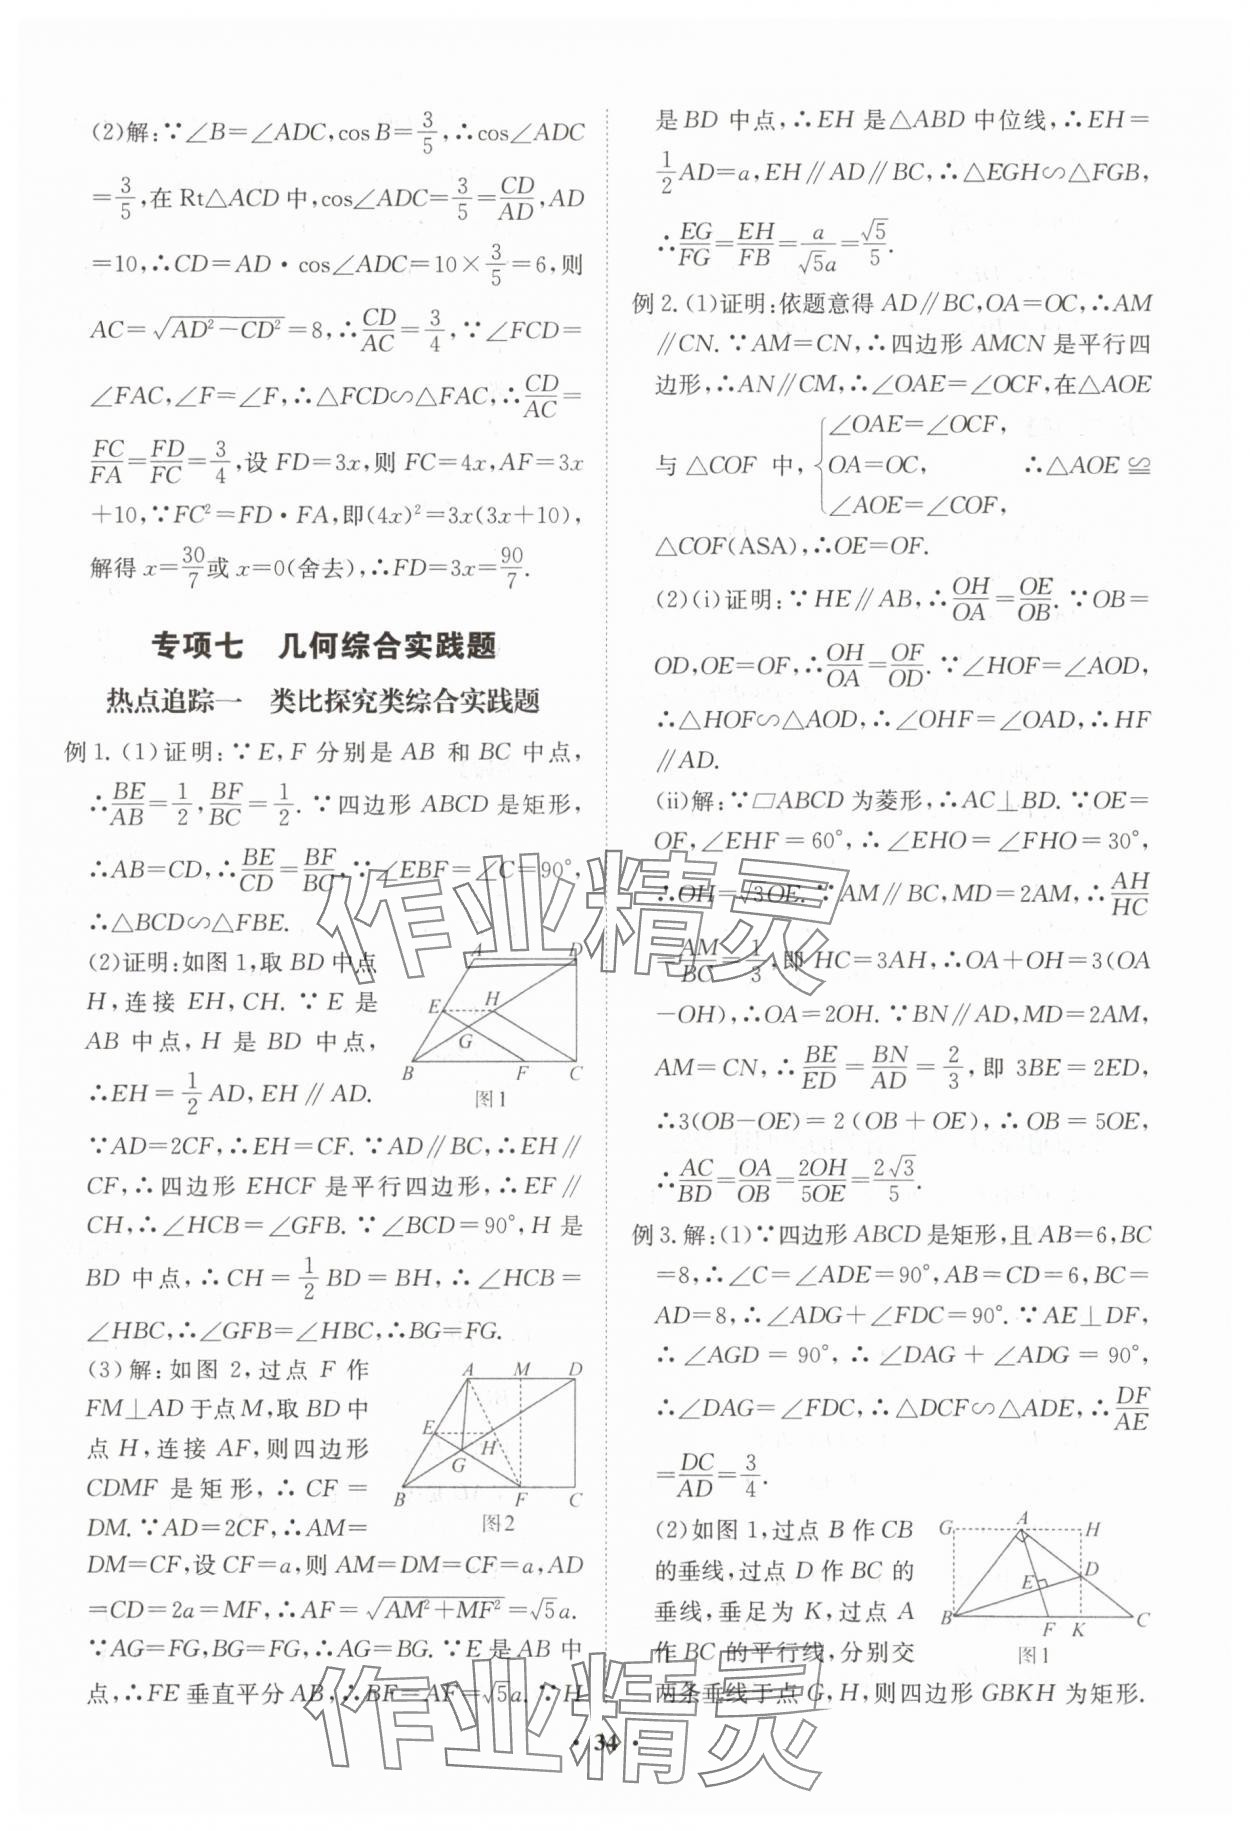 (2)解:∵∠B=∠ADC,cos B=3/5,∴cos∠ADC
=3/5,在 Rt△ACD 中,cos∠ADC=3/5=CD/AD,AD
=10,∴CD=AD·cos∠ADC=10×3/5=6,则
AC=√(AD²-CD²)=8,∴CD/AC=3/4,∵∠FCD=
∠FAC,∠F=∠F,∴△FCD∽△FAC,∴CD/AC=
FC/FA=FD/FC=3/4,设 FD=3x,则 FC=4x,AF=3x
+10,∵FC²=FD·FA,即(4x)²=3x(3x+10),
解得 x=30/7或 x=0(舍去),∴FD=3x=90/7.
专项七 几何综合实践题
热点追踪一 类比探究类综合实践题
例 1.(1)证明:∵E,F 分别是 AB 和 BC 中点,
∴BE/AB=1/2,BF/BC=1/2.∵四边形 ABCD 是矩形,
∴AB=CD,∴BE/CD=BF/BC,∵∠EBF=∠C=90°,
∴△BCD∽△FBE.
(2)证明:如图 1,取 BD 中点
H,连接 EH,CH.∵E 是
AB 中点,H 是 BD 中点,
∴EH=1/2 AD,EH∥AD.
A D E H G B F C
图1
∵AD=2CF,∴EH=CF.∵AD∥BC,∴EH∥
CF,∴四边形 EHCF 是平行四边形,∴EF∥
CH,∴∠HCB=∠GFB.∵∠BCD=90°,H 是
BD 中点,∴CH=1/2 BD=BH,∴∠HCB=
∠HBC,∴∠GFB=∠HBC,∴BG=FG.
(3)解:如图 2,过点 F 作
FM⊥AD 于点 M,取 BD 中
点 H,连接 AF,则四边形
CDMF 是矩形,∴CF=
DM.∵AD=2CF,∴AM=
A M D E H G B F C
图2
DM=CF,设 CF=a,则 AM=DM=CF=a,AD
=CD=2a=MF,∴AF=√(AM²+MF²)=√5a.
∵AG=FG,BG=FG,∴AG=BG.∵E 是 AB 中
点,∴FE 垂直平分 AB,∴BF=AF=√5a.∵H
是 BD 中点,∴EH 是△ABD 中位线,∴EH=
1/2AD=a,EH∥AD∥BC,∴△EGH∽△FGB,
∴EG/FG=EH/FB=a/√5a=√5/5.
例 2.(1)证明:依题意得 AD∥BC,OA=OC,∴AM
∥CN.∵AM=CN,∴四边形 AMCN 是平行四
边形,∴AN∥CM,∴∠OAE=∠OCF,在△AOE
∠OAE=∠OCF,
与△COF 中,{OA=OC, ∴△AOE≌
∠AOE=∠COF,
△COF(ASA),∴OE=OF.
(2)(i)证明:∵HE∥AB,∴OH/OA=OE/OB.∵OB=
OD,OE=OF,∴OH/OA=OF/OD.∵∠HOF=∠AOD,
∴△HOF∽△AOD,∴∠OHF=∠OAD,∴HF
∥AD.
(ii)解:∵□ABCD 为菱形,∴AC⊥BD.∵OE=
OF,∠EHF=60°,∴∠EHO=∠FHO=30°,
∴OH=√3OE.∵AM∥BC,MD=2AM,∴AH/HC
=AM/BC=1/3,即 HC=3AH,∴OA+OH=3(OA
-OH),∴OA=2OH.∵BN∥AD,MD=2AM,
AM=CN,∴BE/ED=BN/AD=2/3,即 3BE=2ED,
∴3(OB-OE)=2(OB+OE),∴OB=5OE,
∴AC/BD=OA/OB=2OH/5OE=2√3/5.
例 3.解:(1)∵四边形 ABCD 是矩形,且 AB=6,BC
=8,∴∠C=∠ADE=90°,AB=CD=6,BC=
AD=8,∴∠ADG+∠FDC=90°.∵AE⊥DF,
∴∠AGD=90°,∴∠DAG+∠ADG=90°,
∴∠DAG=∠FDC,∴△DCF∽△ADE,∴DF/AE
=DC/AD=3/4.
(2)如图 1,过点 B 作 CB
的垂线,过点 D 作 BC 的
垂线,垂足为 K,过点 A
作 BC 的平行线,分别交
G A H E D B F K C
图1
两条垂线于点 G,H,则四边形 GBKH 为矩形.
作业精灵
作业精灵
·34·